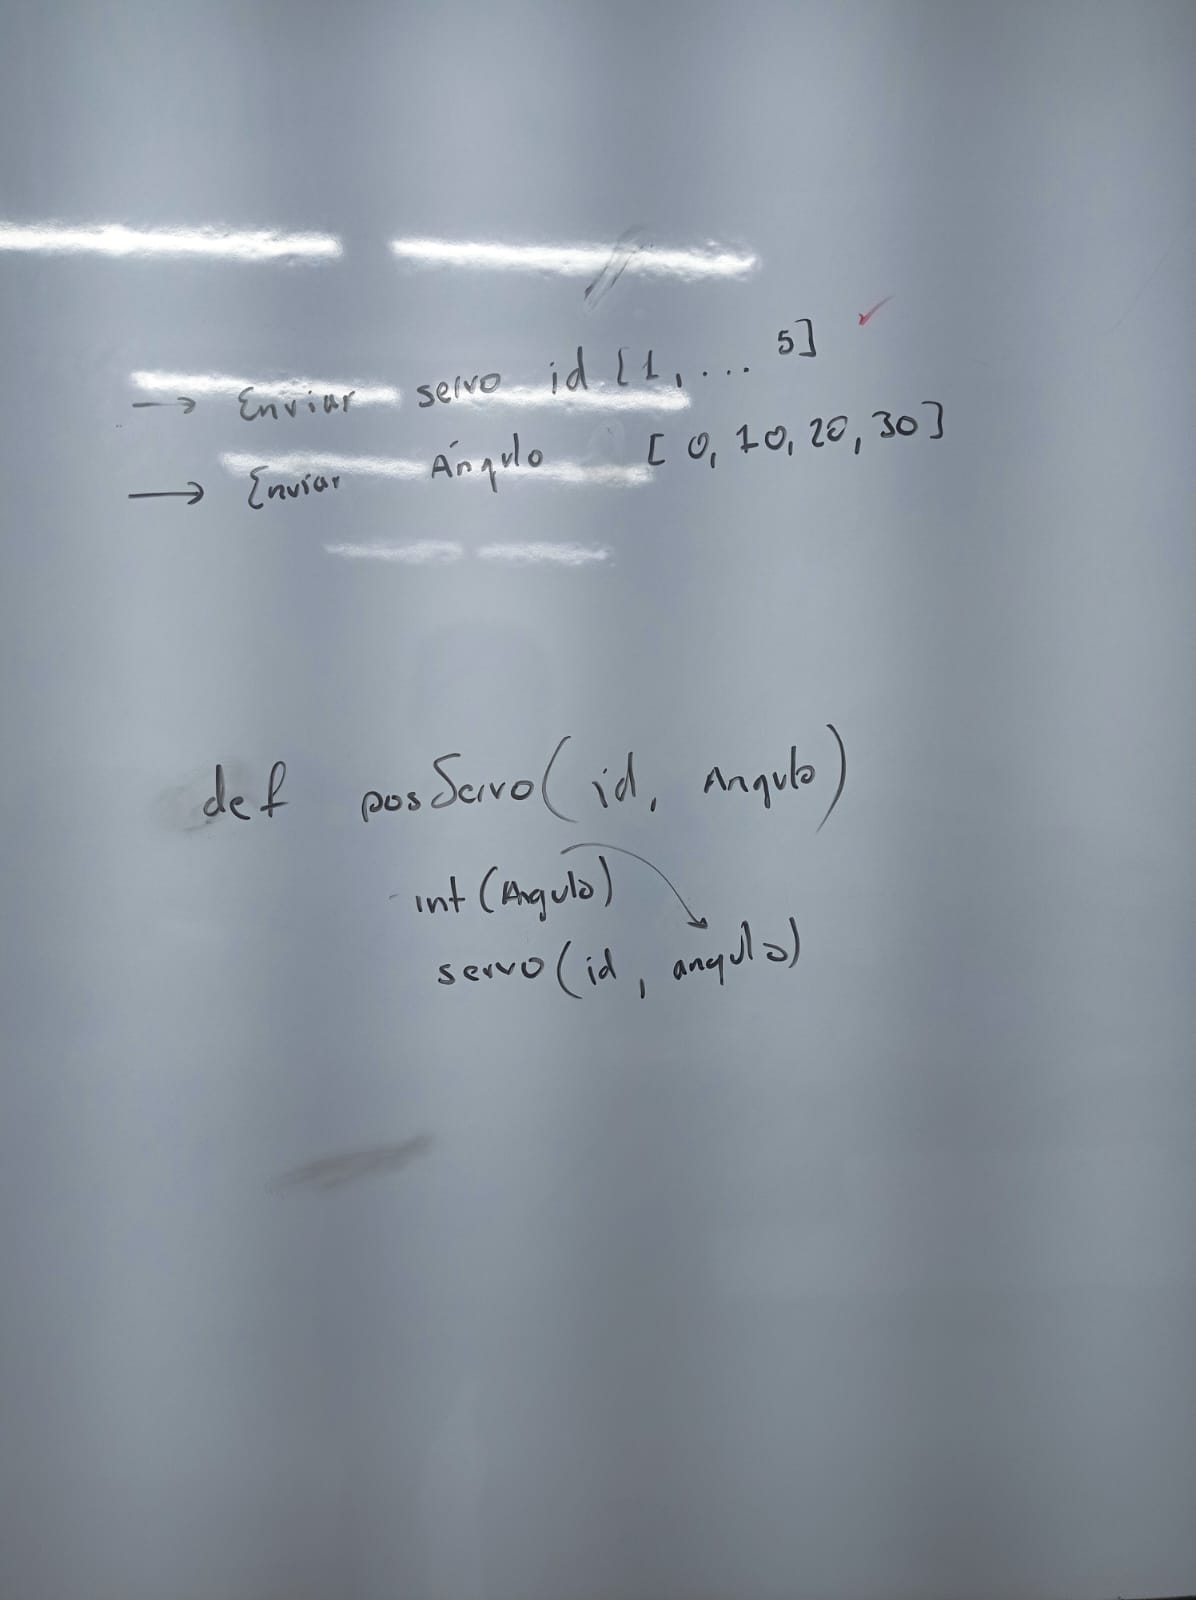 → Enviar servo id [1, ... 5] ✓
→ Enviar Ángulo [0, 10, 20, 30]
def posServo(id, Angulo)
int (Angulo)
servo(id, angulo)